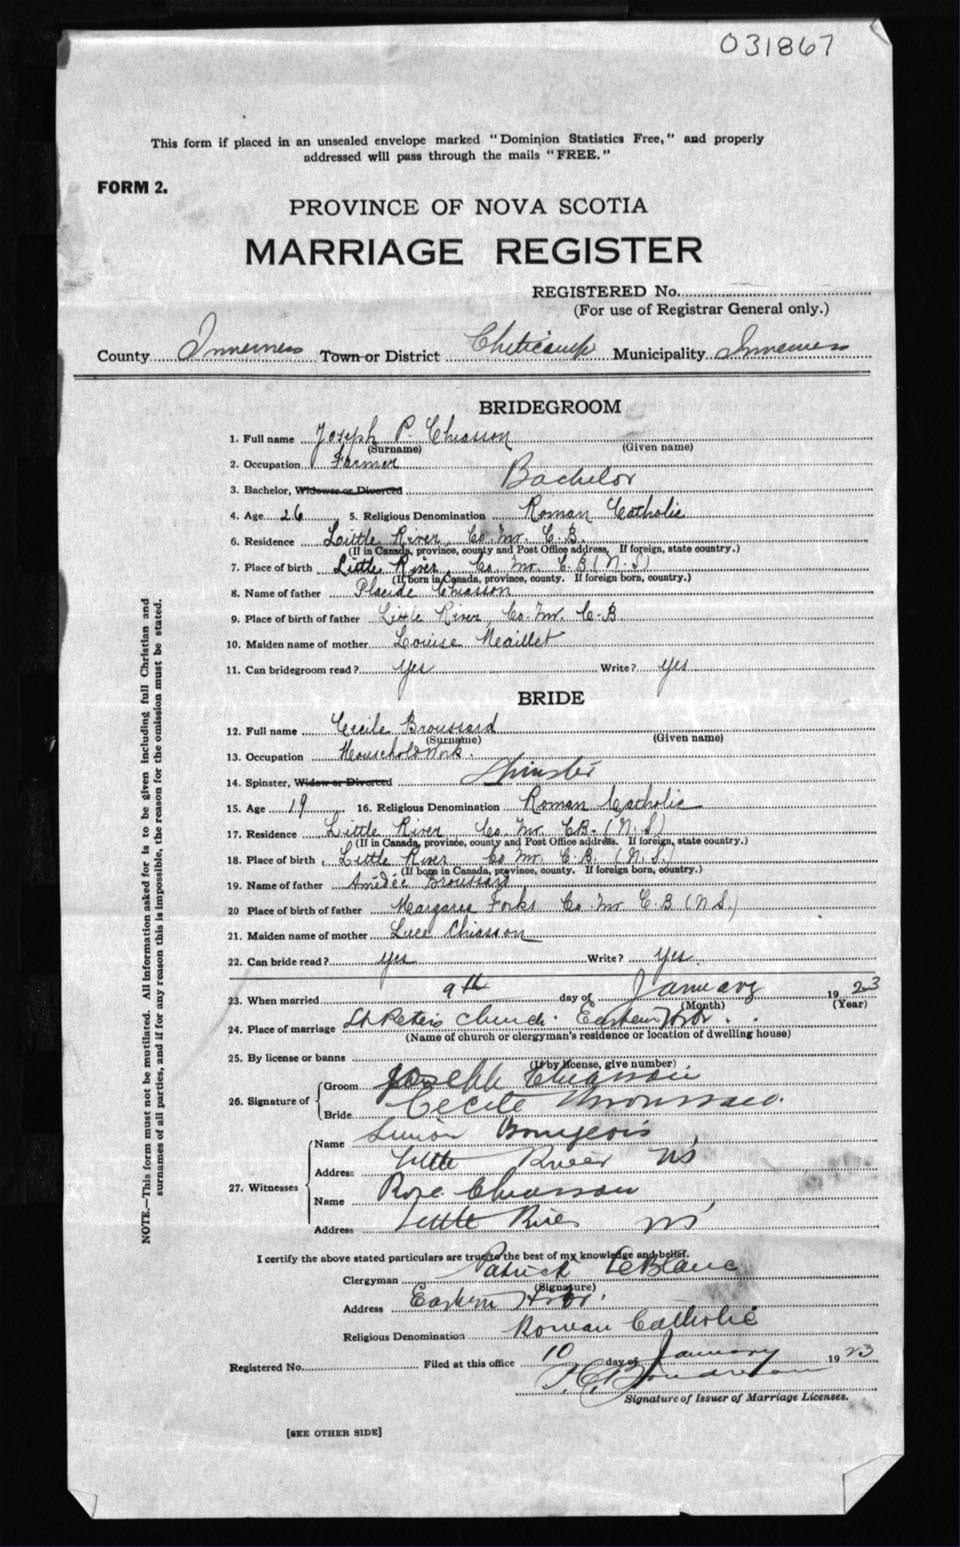 031867
This form if placed in an unsealed envelope marked "Dominion Statistics Free," and properly
addressed will pass through the mails "FREE."
FORM 2.
PROVINCE OF NOVA SCOTIA
MARRIAGE REGISTER
REGISTERED No.
(For use of Registrar General only.)
County Inverness Town or District Cheticamp Municipality Inverness
BRIDEGROOM
1. Full name Joseph P. Chiasson
(Surname) (Given name)
2. Occupation Farmer
3. Bachelor, Widower or Divorced Bachelor
4. Age 26 5. Religious Denomination Roman Catholic
6. Residence Little River, Co. Inv. C.B.
(If in Canada, province, county and Post Office address. If foreign, state country.)
7. Place of birth Little River, Co. Inv. C.B (N.S)
(If born in Canada, province, county. If foreign born, country.)
8. Name of father Placide Chiasson
9. Place of birth of father Little River, Co. Inv. C.B.
10. Maiden name of mother Louise Maillet
11. Can bridegroom read? Yes Write? yes
BRIDE
12. Full name Cecile Broussard
(Surname) (Given name)
13. Occupation Household Work.
14. Spinster, Widow or Divorced Spinster
15. Age 19 16. Religious Denomination Roman Catholic
17. Residence Little River Co. Inv. C.B. (N.S)
(If in Canada, province, county and Post Office address. If foreign, state country.)
18. Place of birth Little River Co Inv. C.B. (N.S.)
(If born in Canada, province, county. If foreign born, country.)
19. Name of father Amédée Broussard
20 Place of birth of father Margaree Forks Co. Inv C.B (N S.)
21. Maiden name of mother Luce Chiasson
22. Can bride read? yes Write? yes.
23. When married 9th day of January 1923
(Month) (Year)
24. Place of marriage St Peter's Church. Eastern Hrbr.
(Name of church or clergyman's residence or location of dwelling house)
25. By license or banns
(If by license, give number)
26. Signature of Groom Joseph Chiasson
Bride Cecile Broussard.
27. Witnesses Name Bourgeois
Address Little River NS
Name Rose Chiasson
Address Little River NS
I certify the above stated particulars are true to the best of my knowledge and belief.
Clergyman Patrick LeBlanc
(Signature)
Address Eastern Hrbr.
Religious Denomination Roman Catholic
Registered No. Filed at this office 10 day of January 1923
Signature of Issuer of Marriage Licenses.
[SEE OTHER SIDE]
NOTE.—This form must not be mutilated. All information asked for is to be given including full Christian and
surnames of all parties, and if for any reason this is impossible, the reason for the omission must be stated.